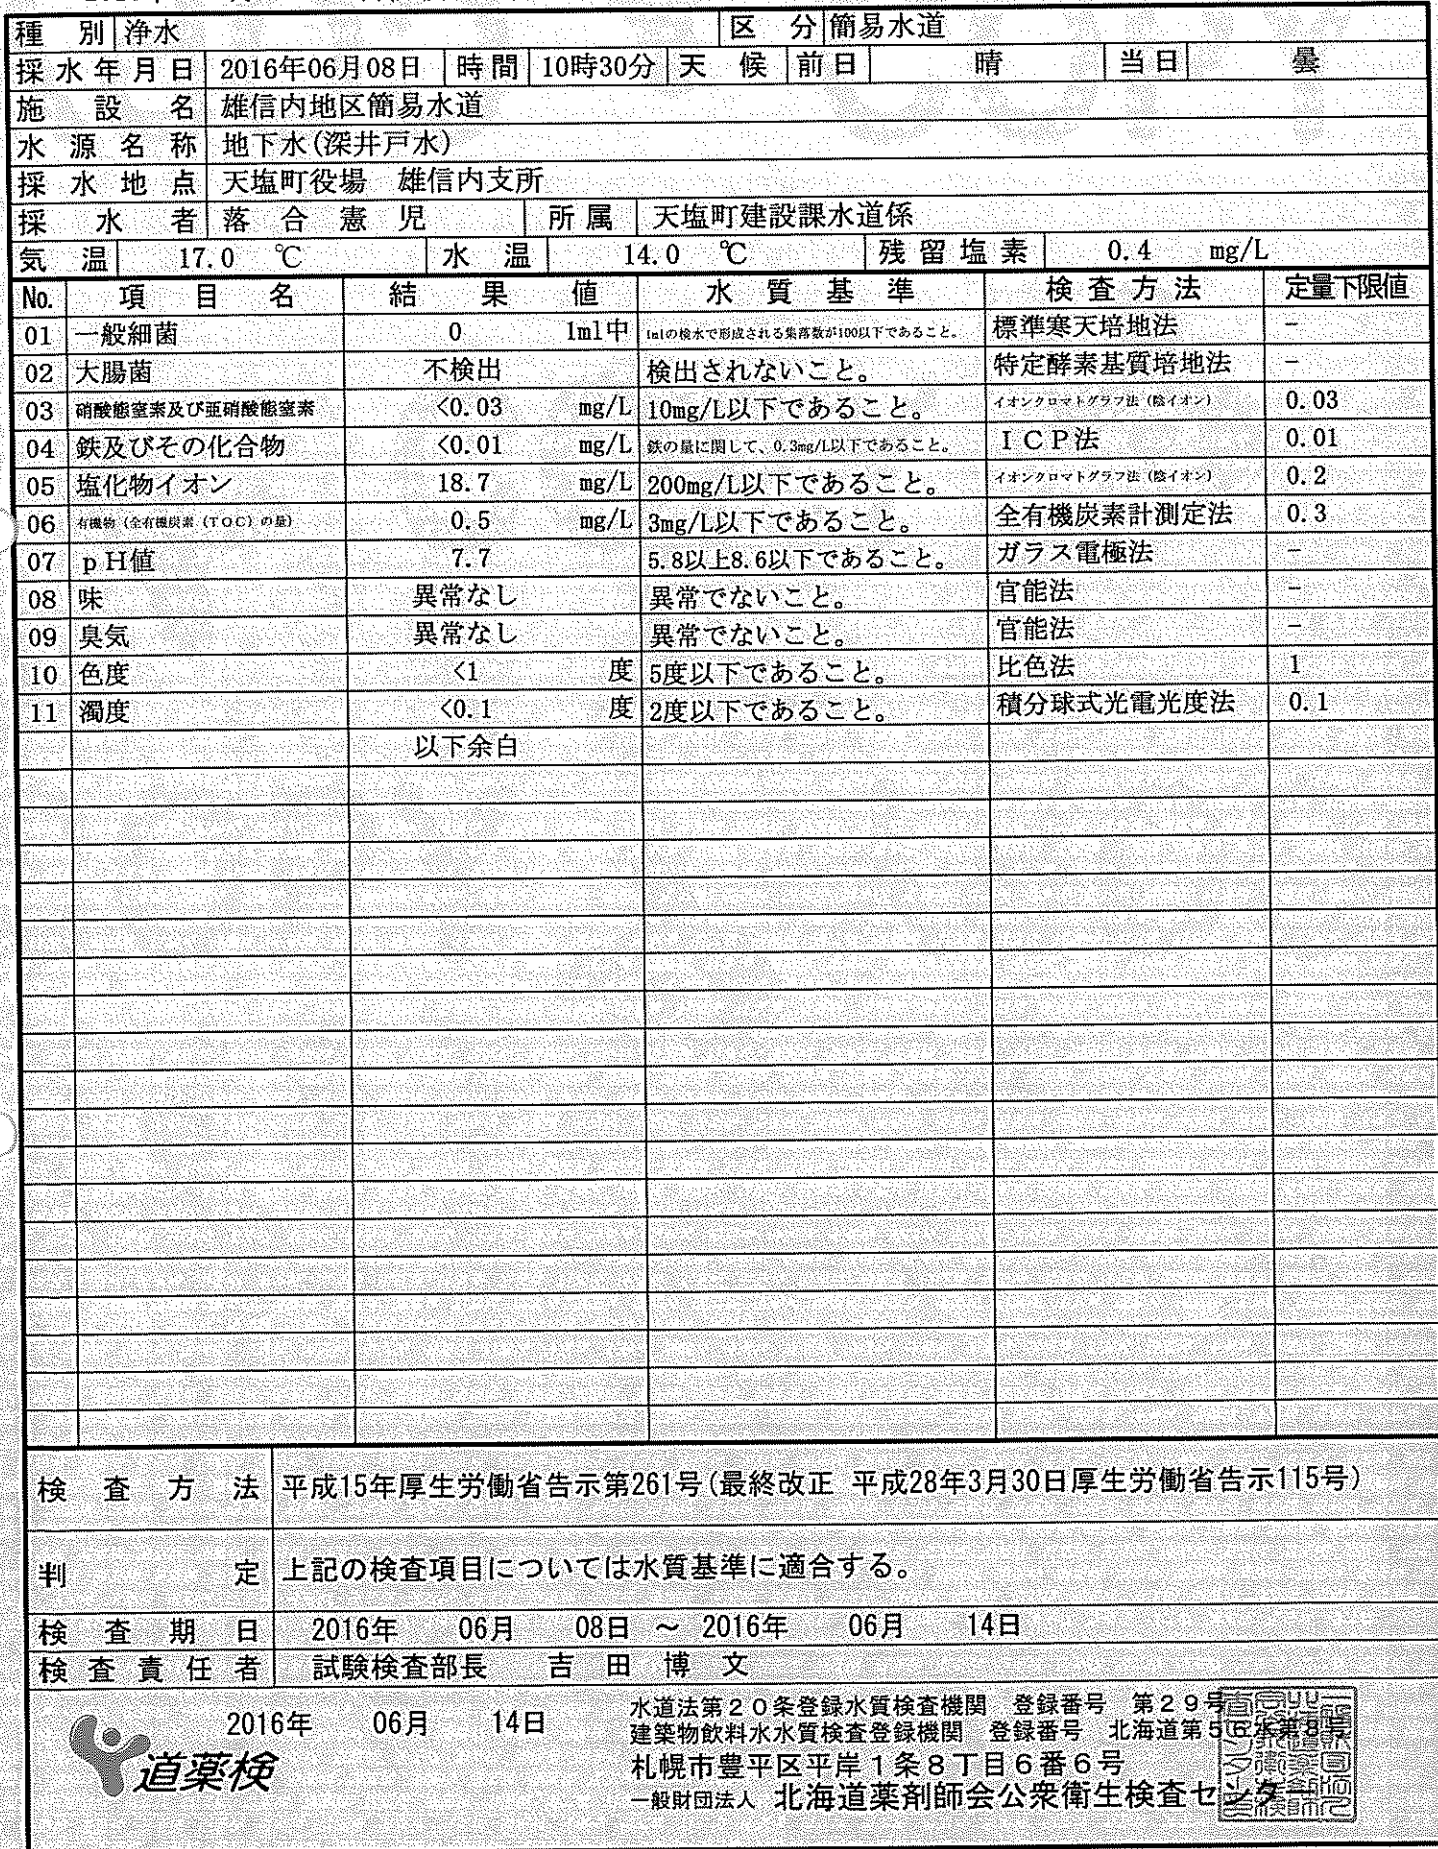 種 別 浄水 区 分 簡易水道
採水年月日 2016年06月08日 時間 10時30分 天 候 前日 晴 当日 曇
施 設 名 雄信内地区簡易水道
水 源 名 称 地下水(深井戸水)
採 水 地 点 天塩町役場 雄信内支所
採 水 者 落 合 憲 児 所属 天塩町建設課水道係
気 温 17.0 ℃ 水 温 14.0 ℃ 残留塩素 0.4 mg/L
No. 項 目 名 結 果 値 水 質 基 準 検査方法 定量下限値
01 一般細菌 0 1ml中 1mlの検水で形成される集落数が100以下であること。 標準寒天培地法 -
02 大腸菌 不検出 検出されないこと。 特定酵素基質培地法 -
03 硝酸態窒素及び亜硝酸態窒素 <0.03 mg/L 10mg/L以下であること。 イオンクロマトグラフ法(陰イオン) 0.03
04 鉄及びその化合物 <0.01 mg/L 鉄の量に関して、0.3mg/L以下であること。 ICP法 0.01
05 塩化物イオン 18.7 mg/L 200mg/L以下であること。 イオンクロマトグラフ法(陰イオン) 0.2
06 有機物(全有機炭素(TOC)の量) 0.5 mg/L 3mg/L以下であること。 全有機炭素計測定法 0.3
07 pH値 7.7 5.8以上8.6以下であること。 ガラス電極法 -
08 味 異常なし 異常でないこと。 官能法 -
09 臭気 異常なし 異常でないこと。 官能法 -
10 色度 <1 度 5度以下であること。 比色法 1
11 濁度 <0.1 度 2度以下であること。 積分球式光電光度法 0.1
以下余白
検 査 方 法 平成15年厚生労働省告示第261号(最終改正 平成28年3月30日厚生労働省告示115号)
判 定 上記の検査項目については水質基準に適合する。
検 査 期 日 2016年 06月 08日 ～ 2016年 06月 14日
検査責任者 試験検査部長 吉 田 博 文
2016年 06月 14日
道薬検
水道法第20条登録水質検査機関 登録番号 第29号
建築物飲料水水質検査登録機関 登録番号 北海道第56水第8号
札幌市豊平区平岸1条8丁目6番6号
一般財団法人 北海道薬剤師会公衆衛生検査センター